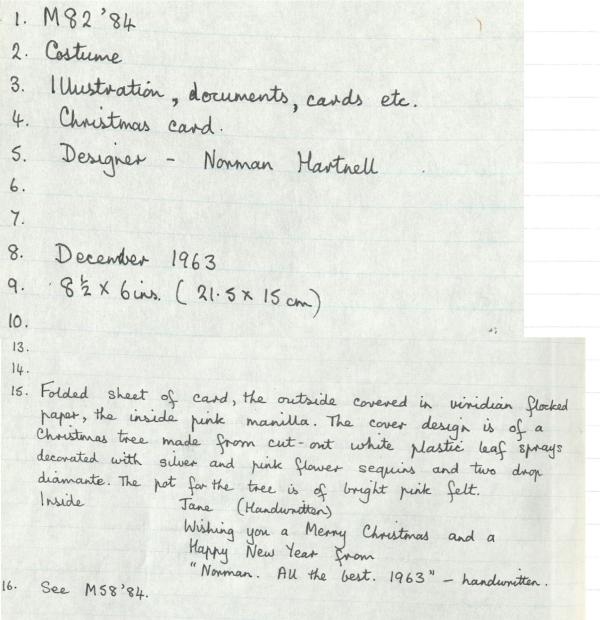 1. M82 '84
2. Costume
3. Illustration, documents, cards etc.
4. Christmas card.
5. Designer - Norman Hartnell
6.
7.
8. December 1963
9. 8½ x 6ins. (21.5 x 15 cm)
10.
13.
14.
15. Folded sheet of card, the outside covered in viridian flocked
paper, the inside pink manilla. The cover design is of a
Christmas tree made from cut-out white plastic leaf sprays
decorated with silver and pink flower sequins and two drop
diamante. The pot for the tree is of bright pink felt.
Inside Jane (Handwritten)
Wishing you a Merry Christmas and a
Happy New Year from
"Norman. All the best. 1963" - handwritten.
16. See M58'84.